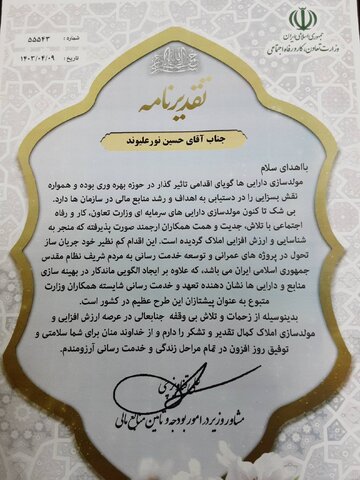 جمهوری اسلامی ایران
وزارت تعاون، کار و رفاه اجتماعی
شماره : ۵۵۵۴۳
تاریخ : ۱۴۰۳/۰۴/۰۹
تقدیرنامه
جناب آقای حسین نورعلیوند
بااهدای سلام
مولدسازی دارایی ها گویای اقدامی تاثیر گذار در حوزه بهره وری بوده و همواره
نقش بسزایی را در دستیابی به اهداف و رشد منابع مالی در سازمان ها دارد.
بی شک تا کنون مولدسازی دارایی های سرمایه ای وزارت تعاون، کار و رفاه
اجتماعی با تلاش، جدیت و همت همکاران ارجمند صورت پذیرفته که منجر به
شناسایی و ارزش افزایی املاک گردیده است. این اقدام کم نظیر خود جریان ساز
تحول در پروژه های عمرانی و توسعه خدمت رسانی به مردم شریف نظام مقدس
جمهوری اسلامی ایران می باشد، که علاوه بر ایجاد الگویی ماندگار در بهینه سازی
منابع و دارایی ها نشان دهنده تعهد و خدمت رسانی شایسته همکاران وزارت
متبوع به عنوان پیشتازان این طرح عظیم در کشور است.
بدینوسیله از زحمات و تلاش بی وقفه جنابعالی در عرصه ارزش افزایی و
مولدسازی املاک کمال تقدیر و تشکر را دارم و از خداوند منان برای شما سلامتی و
توفیق روز افزون در تمام مراحل زندگی و خدمت رسانی آرزومندم.
مشاور وزیر در امور بودجه و تأمین منابع مالی